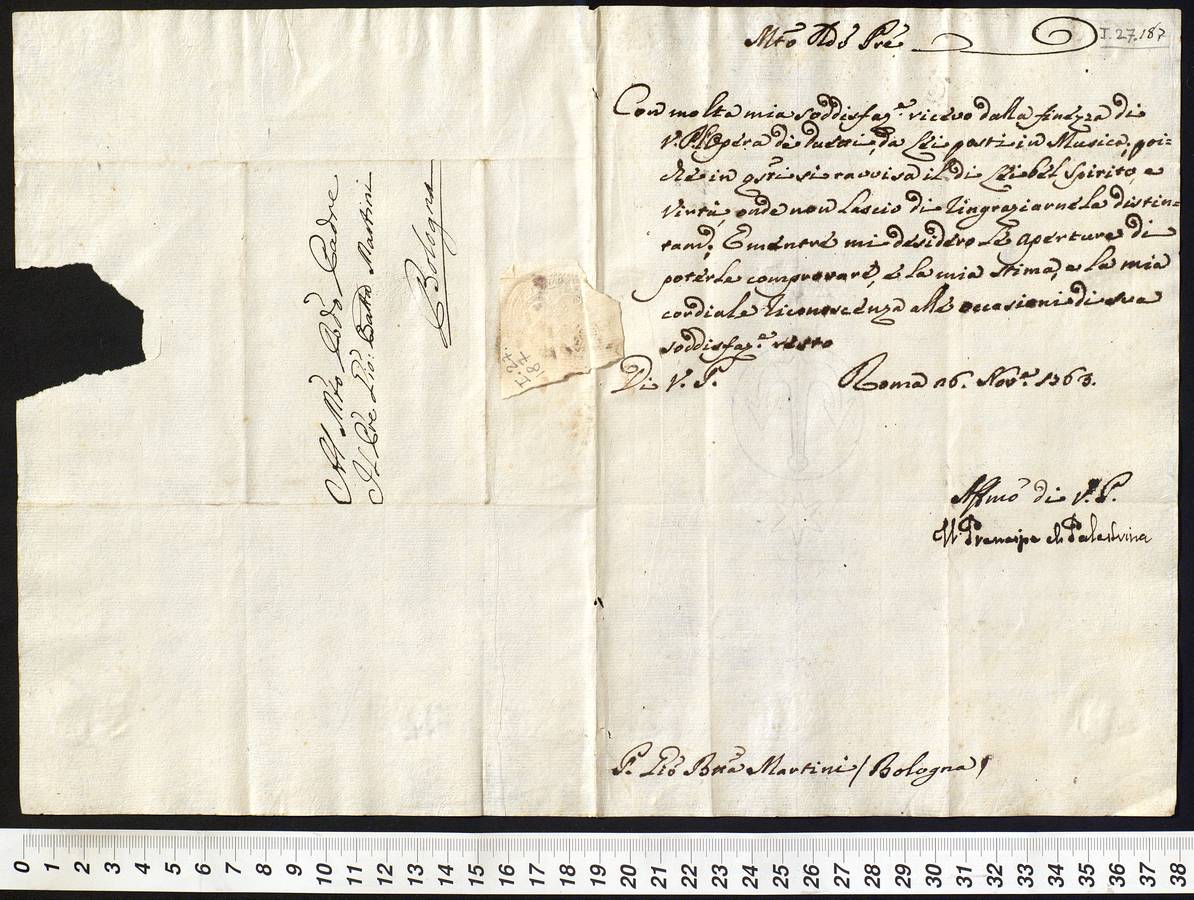 Al Mto Rdo Padre
Il Pre Gio: Batta Martini
Bologna
I.27.
187
Mto Rdo Pre
I.27.187
Con molta mia soddisfaz.e ricevo dalla finezza di
V. P. l'Opera de' duetti, da Lei posti in Musica, poi-
chè in qsti si ravvisa il di Lei bel Spirito, e
Virtù, onde non lascio di ringraziarnela distin-
tam.e E mentre mi desidero le aperture di
poterle comprovare, e la mia stima, e la mia
cordiale riconoscenza alle occasioni di sua
soddisfaz.e resto
Di V. P.
Roma 26. Nov.e 1763.
Affmo di V. P.
Il Prencipe di Palestrina
P. Gio Btta Martini / Bologna /
0 1 2 3 4 5 6 7 8 9 10 11 12 13 14 15 16 17 18 19 20 21 22 23 24 25 26 27 28 29 30 31 32 33 34 35 36 37 38